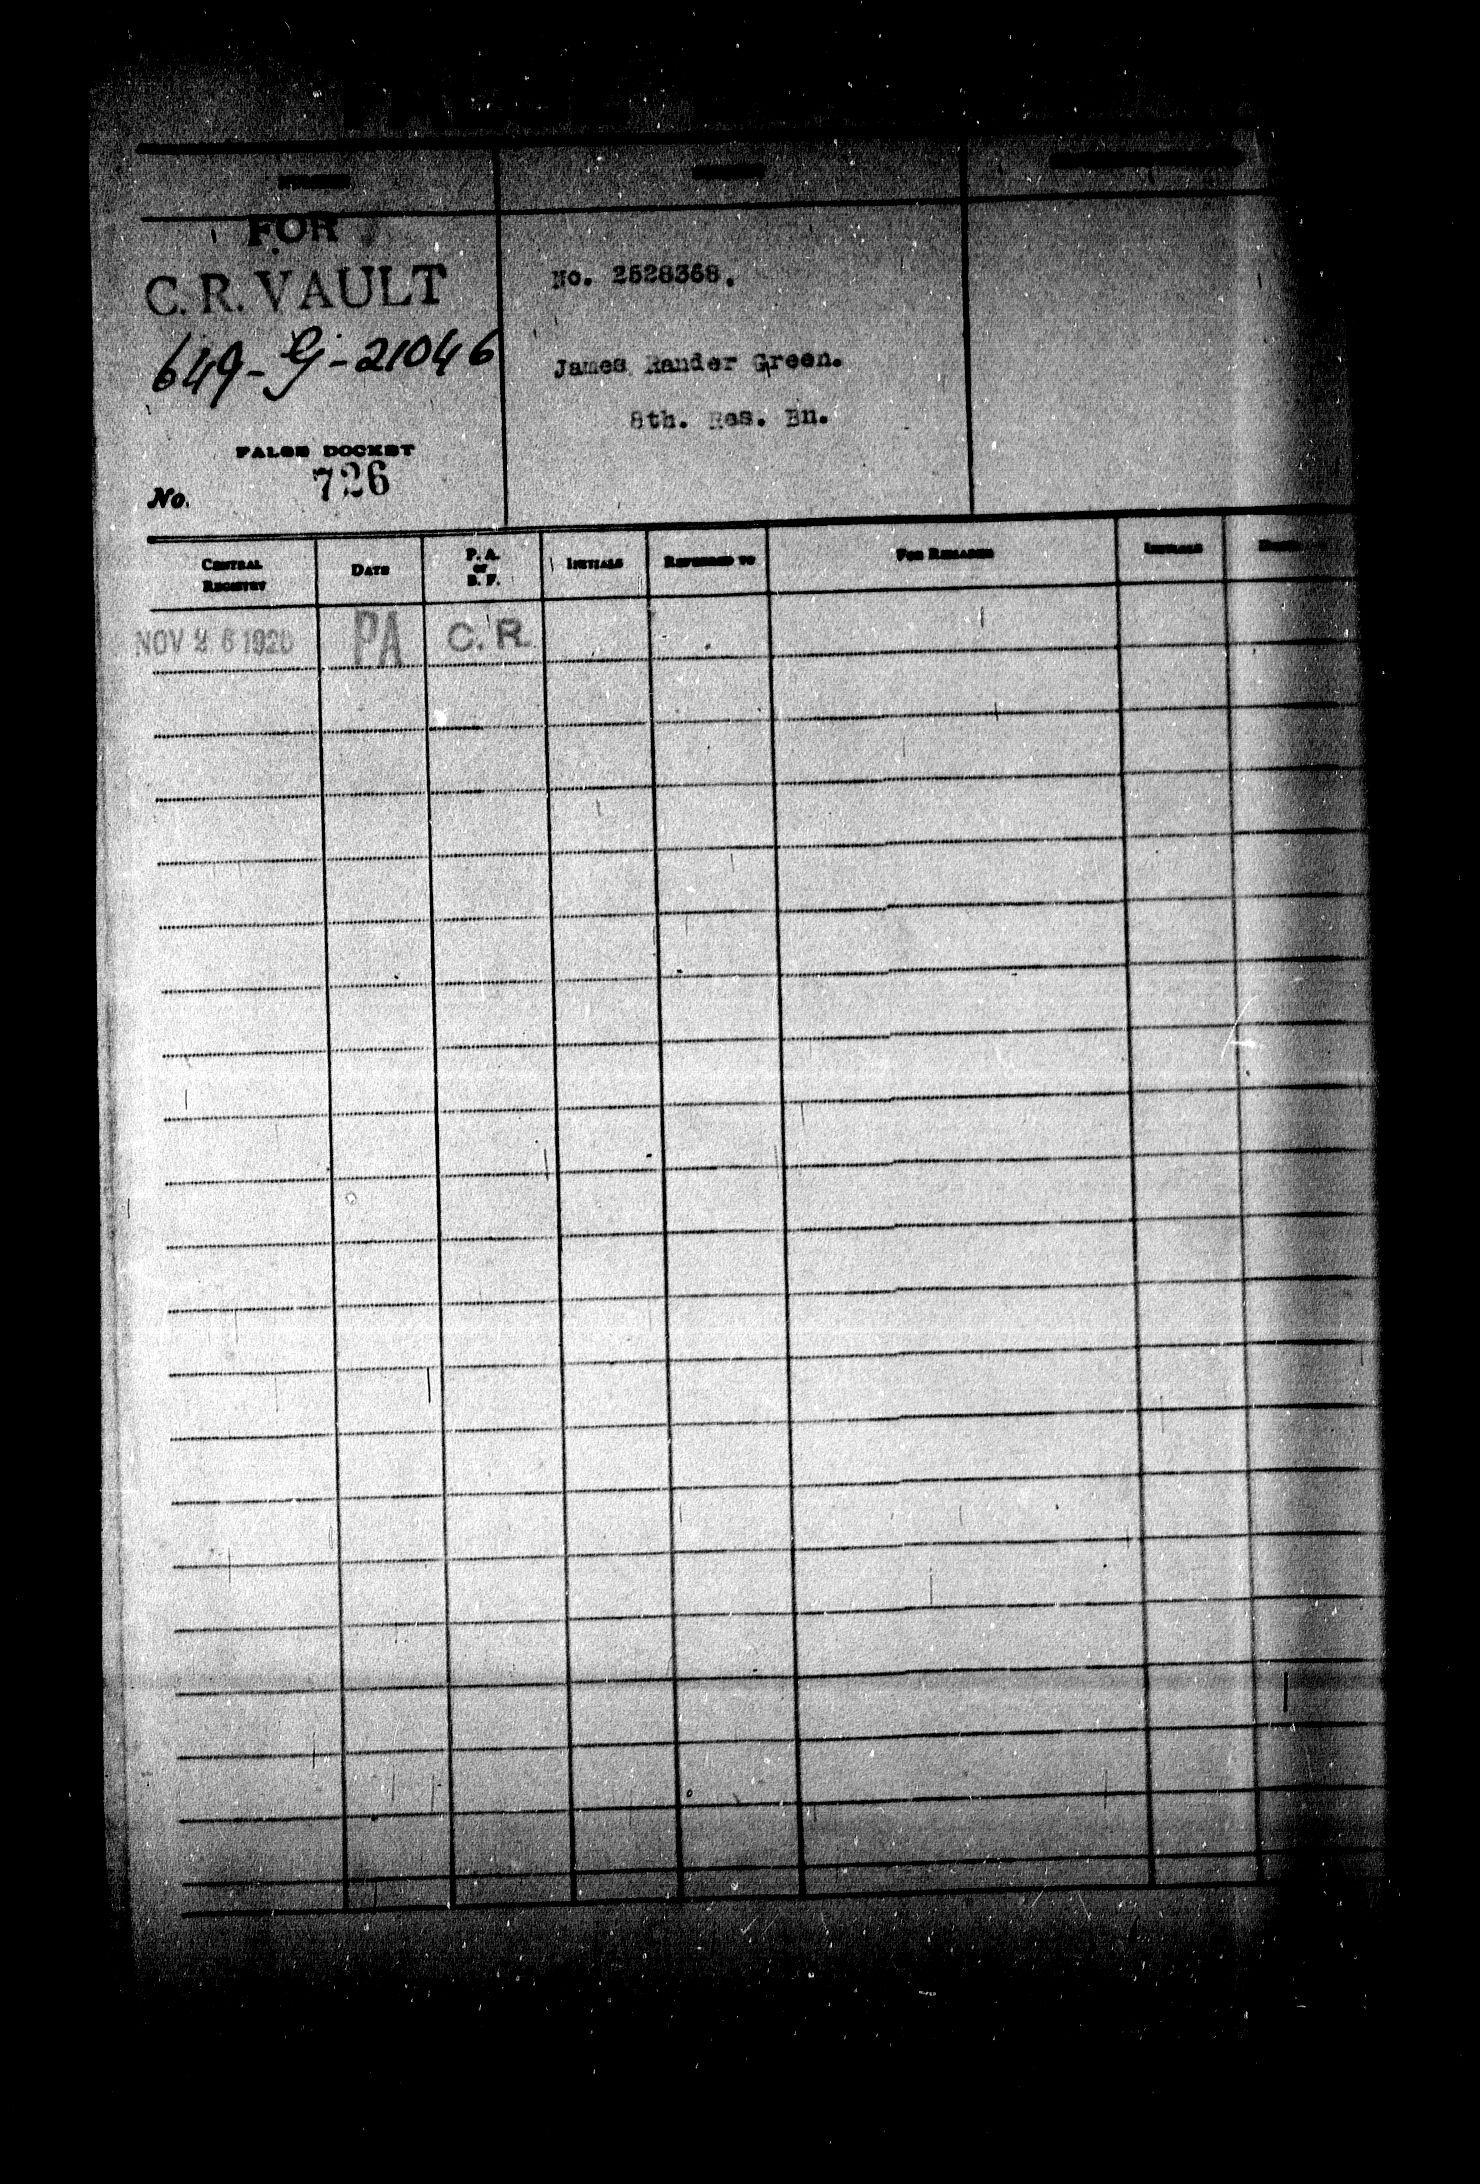 FOR
C. R. VAULT
649-G-21046
FALSE DOCKET
No. 726
No. 2528368.
James Rander Green.
8th. Res. Bn.
CENTRAL REGISTRY
DATE
P. A. or B. F.
INITIALS
REFERRED TO
FOR REMARKS
INITIALS
NOV 26 1920 PA C. R.